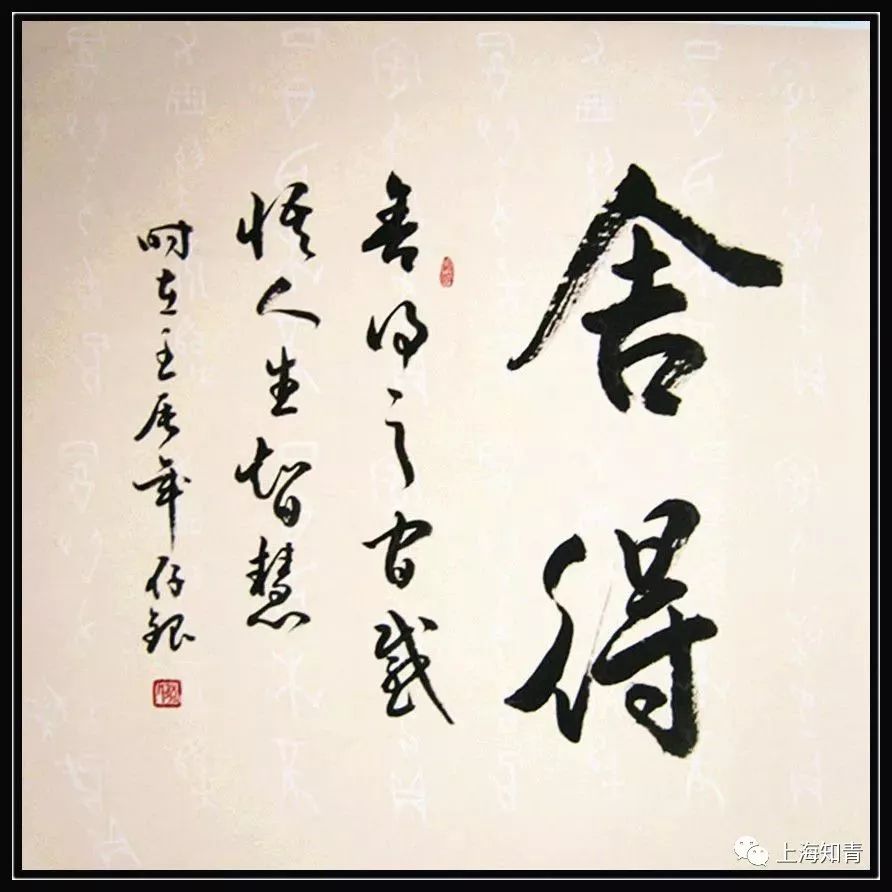 舍得
舍得之间感
悟人生智慧
时在壬辰年仔银
上海知青